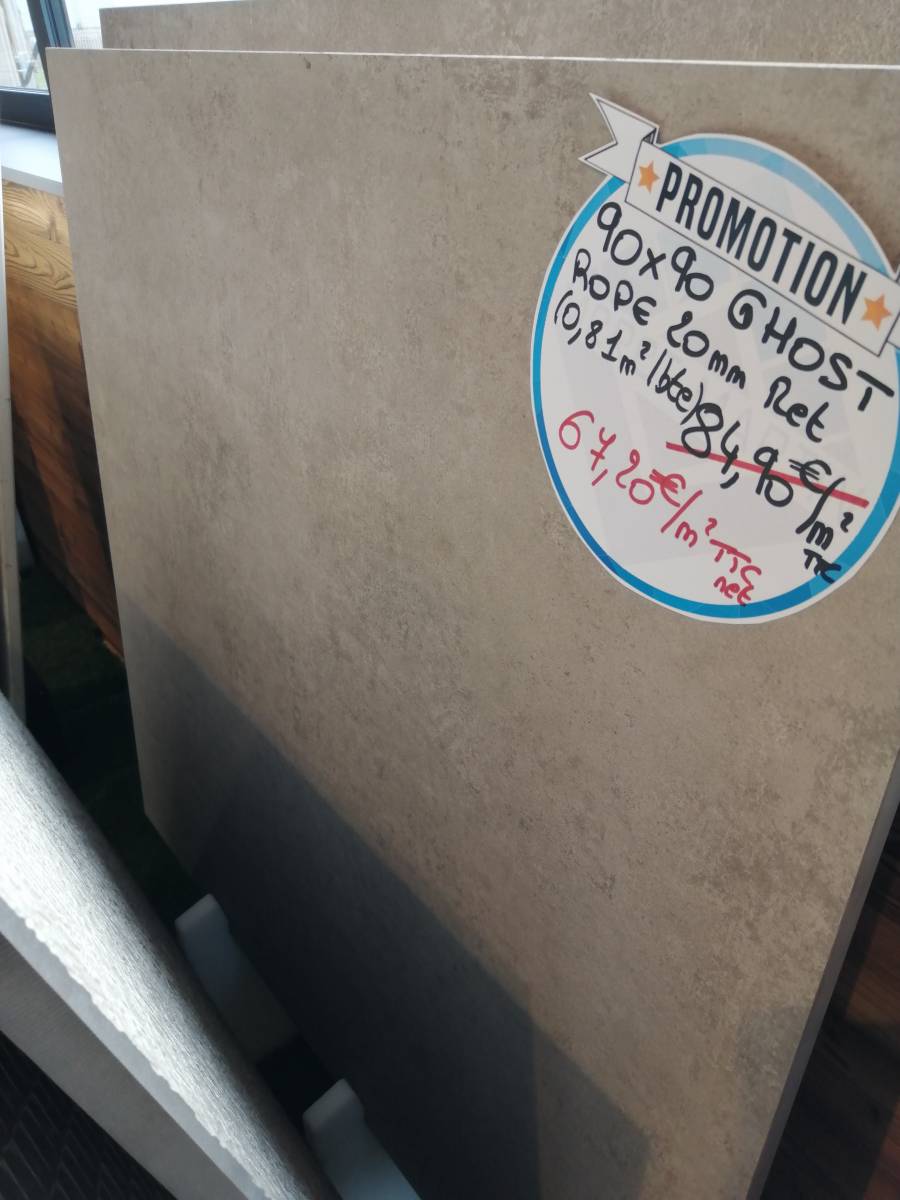 PROMOTION
90x90 GHOST
ROPE 20mm Ret
(0,81m²/bte) 84,90€/m² TTC
67,20€/m² TTC
net